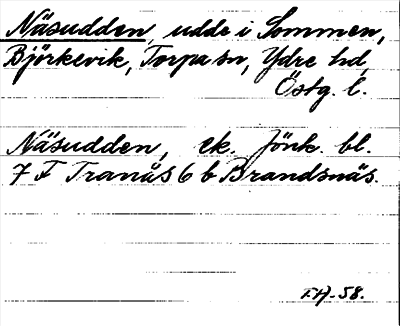 Näsudden, udde i Sommen,
Björkevik, Torpa sn, Ydre hd,
Östg. l.
Näsudden, ek. Jönk. bl.
7 F Tranås 6 b Brandsnäs.
T.H. -58.